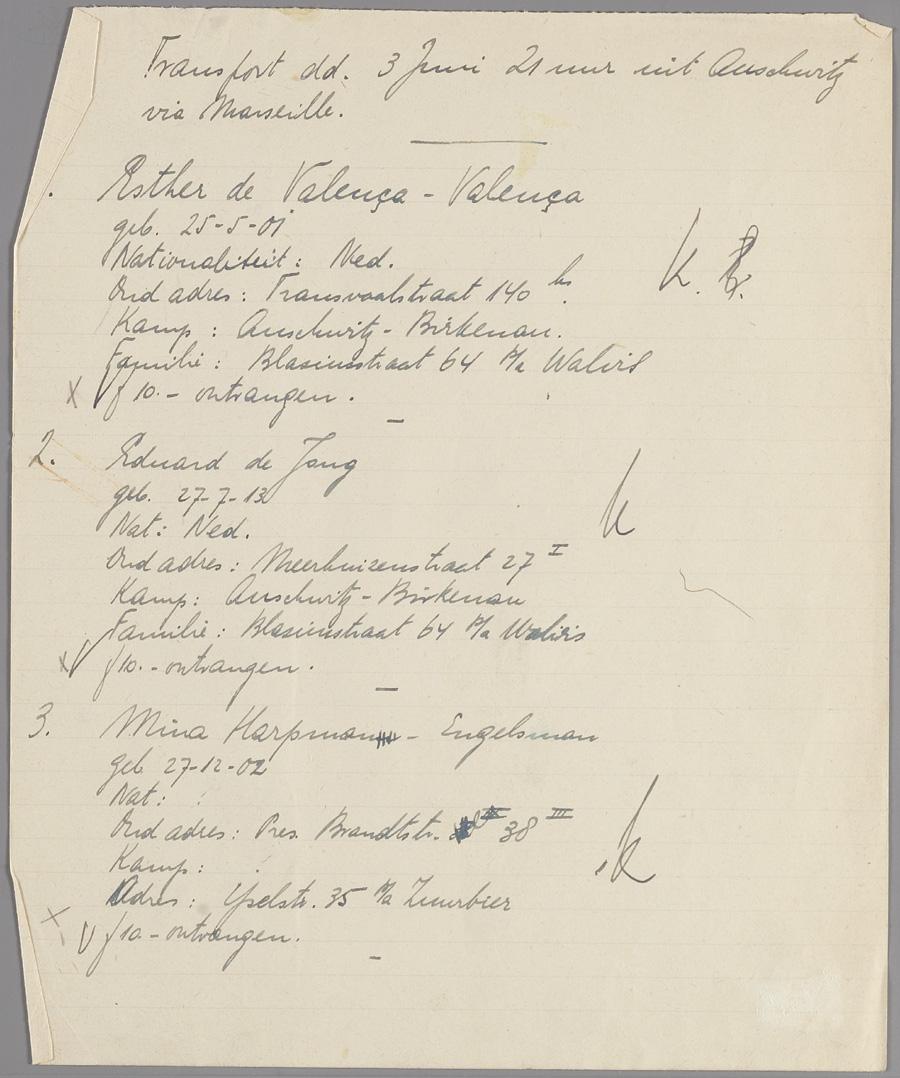 Transport dd. 3 Juni 21 uur uit Auschwitz
via Marseille.
Esther de Valença - Valença
geb. 25-5-01
Nationaliteit: Ned.
Oud adres: Transvaalstraat 140 hs.
Kamp: Auschwitz - Birkenau.
Familie: Blasiusstraat 64 p/a Walvis
K.
X f 10.- ontvangen.
2. Eduard de Jong
geb. 27-7-13
Nat: Ned.
K
Oud adres: Meerhuizenstraat 27 I
Kamp: Auschwitz - Birkenau
Familie: Blasiusstraat 64 p/a Walvis
X V f 10.- ontvangen.
3. Mina Harpman - Engelsman
geb 27-12-02
Nat:
Oud adres: Pres. Brandtstr. 38 III
Kamp:
K
Adres: Yselstr. 35 p/a Zuurbier
X V f 10.- ontvangen.